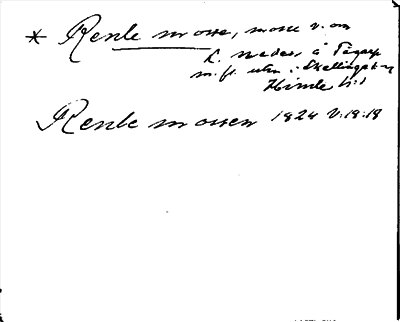 * Renle mosse, mosse v. om
L. nedes å Tågarp
m. fl. utm. i Skällinge sn
Himle hd
Renle mossen 1824 V:18:18